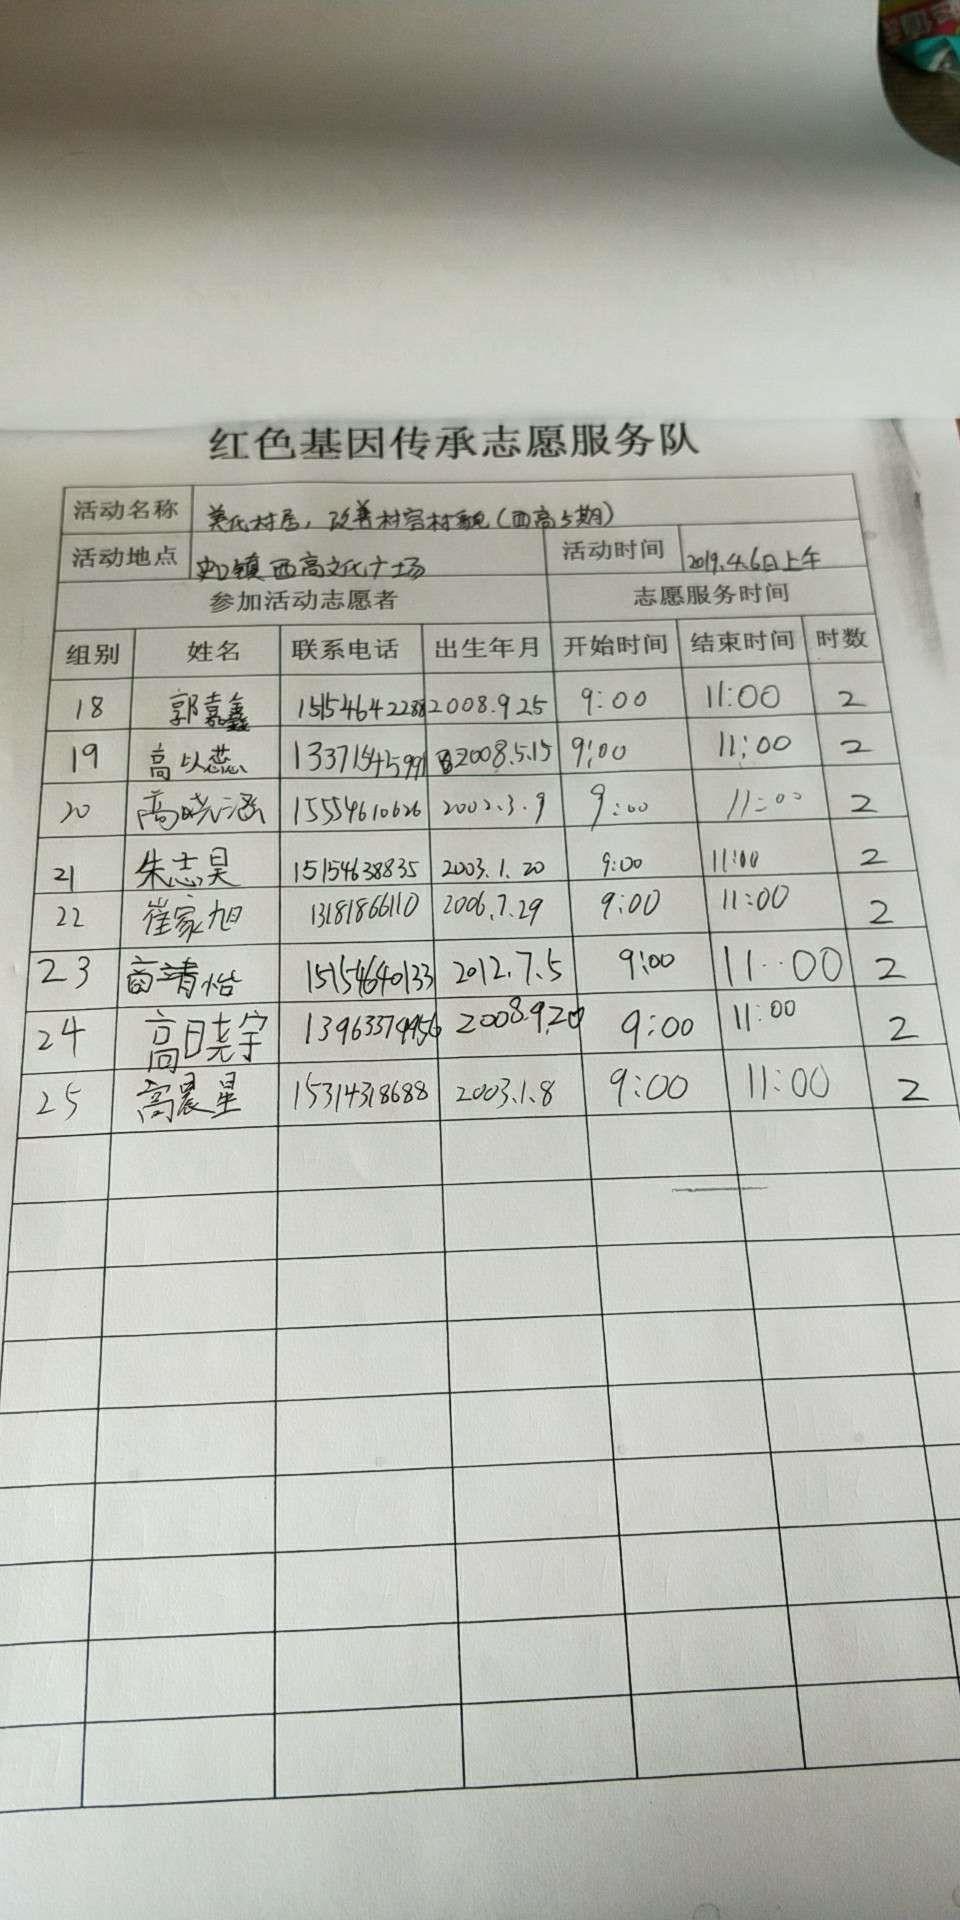 红色基因传承志愿服务队
活动名称 美化村居，改善村容村貌（西高5期）
活动地点 史口镇西高文化广场 活动时间 2019.4.6日上午
参加活动志愿者 志愿服务时间
组别 姓名 联系电话 出生年月 开始时间 结束时间 时数
18 郭嘉鑫 15154642288 2008.9.25 9:00 11:00 2
19 高以蕊 2008.5.15 9:00 11:00 2
20 高晓涵 15554610626 2002.3.9 9:00 11:00 2
21 朱志昊 15154638835 2003.1.20 9:00 11:00 2
22 崔家旭 13181866110 2006.7.29 9:00 11:00 2
23 高靖怡 15154640133 2012.7.5 9:00 11:00 2
24 高晓宇 2008.9.20 9:00 11:00 2
25 高晨星 15314318688 2003.1.8 9:00 11:00 2